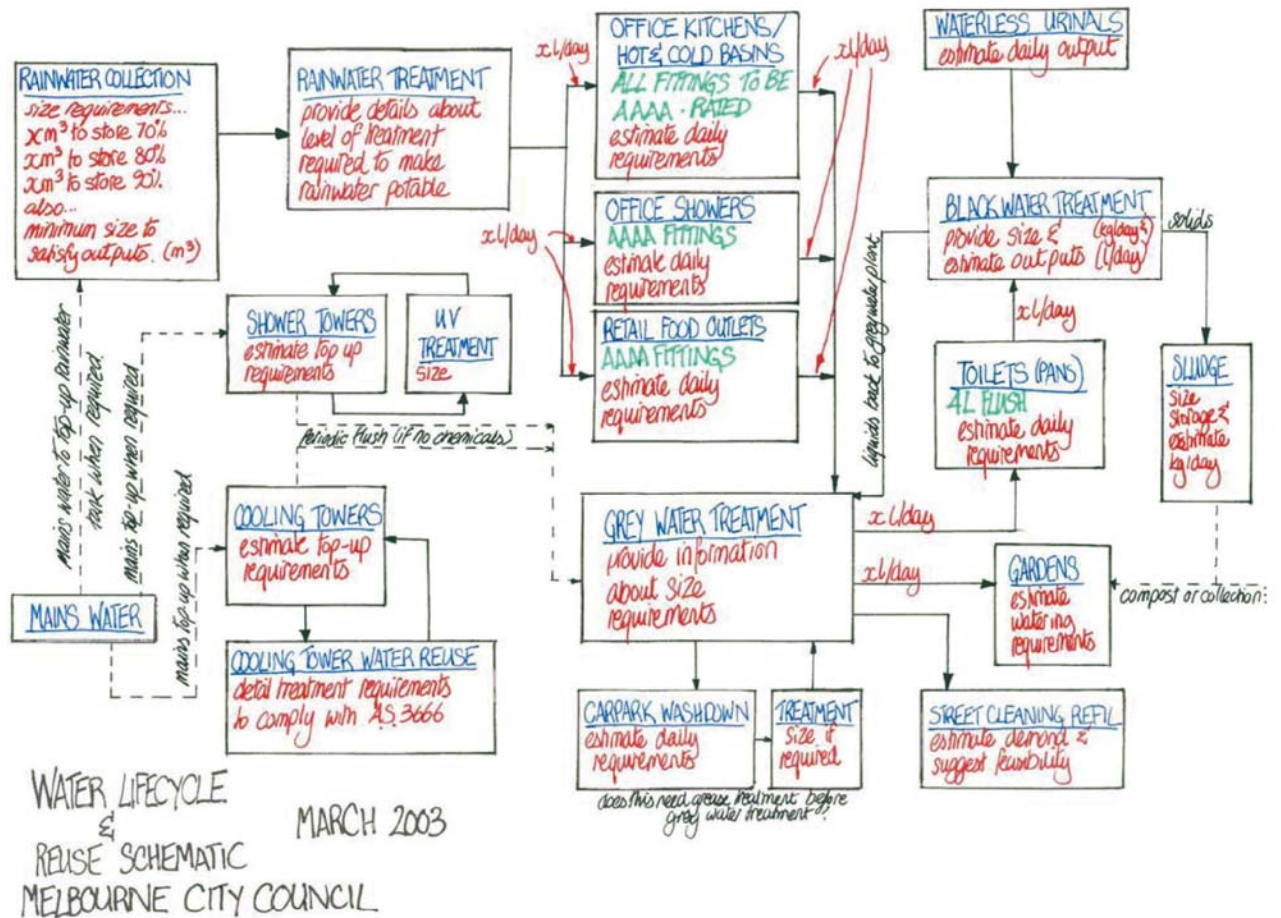 RAINWATER COLLECTION
size requirements...
xm³ to store 70%
xm³ to store 80%
xm³ to store 90%.
also...
minimum size to
satisfy outputs. (m³)
RAINWATER TREATMENT
provide details about
level of treatment
required to make
rainwater potable
xl/day
OFFICE KITCHENS/
HOT & COLD BASINS
ALL FITTINGS TO BE
AAAA - RATED
estimate daily
requirements
xl/day
WATERLESS URINALS
estimate daily output
xl/day
OFFICE SHOWERS
AAAA FITTINGS
estimate daily
requirements
RETAIL FOOD OUTLETS
AAAA FITTINGS
estimate daily
requirements
BLACK WATER TREATMENT
provide size & (kg/day &)
estimate outputs (l/day)
solids
liquids back to grey water plant
xl/day
TOILETS (PANS)
4L FLUSH
estimate daily
requirements
SLUDGE
size
storage &
estimate
kg/day
SHOWER TOWERS
estimate top up
requirements
UV
TREATMENT
size
Periodic flush (if no chemicals)
mains water to top-up rainwater
tank when required.
mains top-up when required
mains top-up when required
COOLING TOWERS
estimate top-up
requirements
MAINS WATER
COOLING TOWER WATER REUSE
detail treatment requirements
to comply with A.S. 3666
GREY WATER TREATMENT
provide information
about size
requirements
xl/day
xl/day
GARDENS
estimate
watering
requirements
compost or collection
CARPARK WASHDOWN
estimate daily
requirements
TREATMENT
size if
required
does this need grease treatment before
grey water treatment?
STREET CLEANING REFIL
estimate demand &
suggest feasibility
WATER LIFECYCLE
&
REUSE SCHEMATIC
MELBOURNE CITY COUNCIL
MARCH 2003